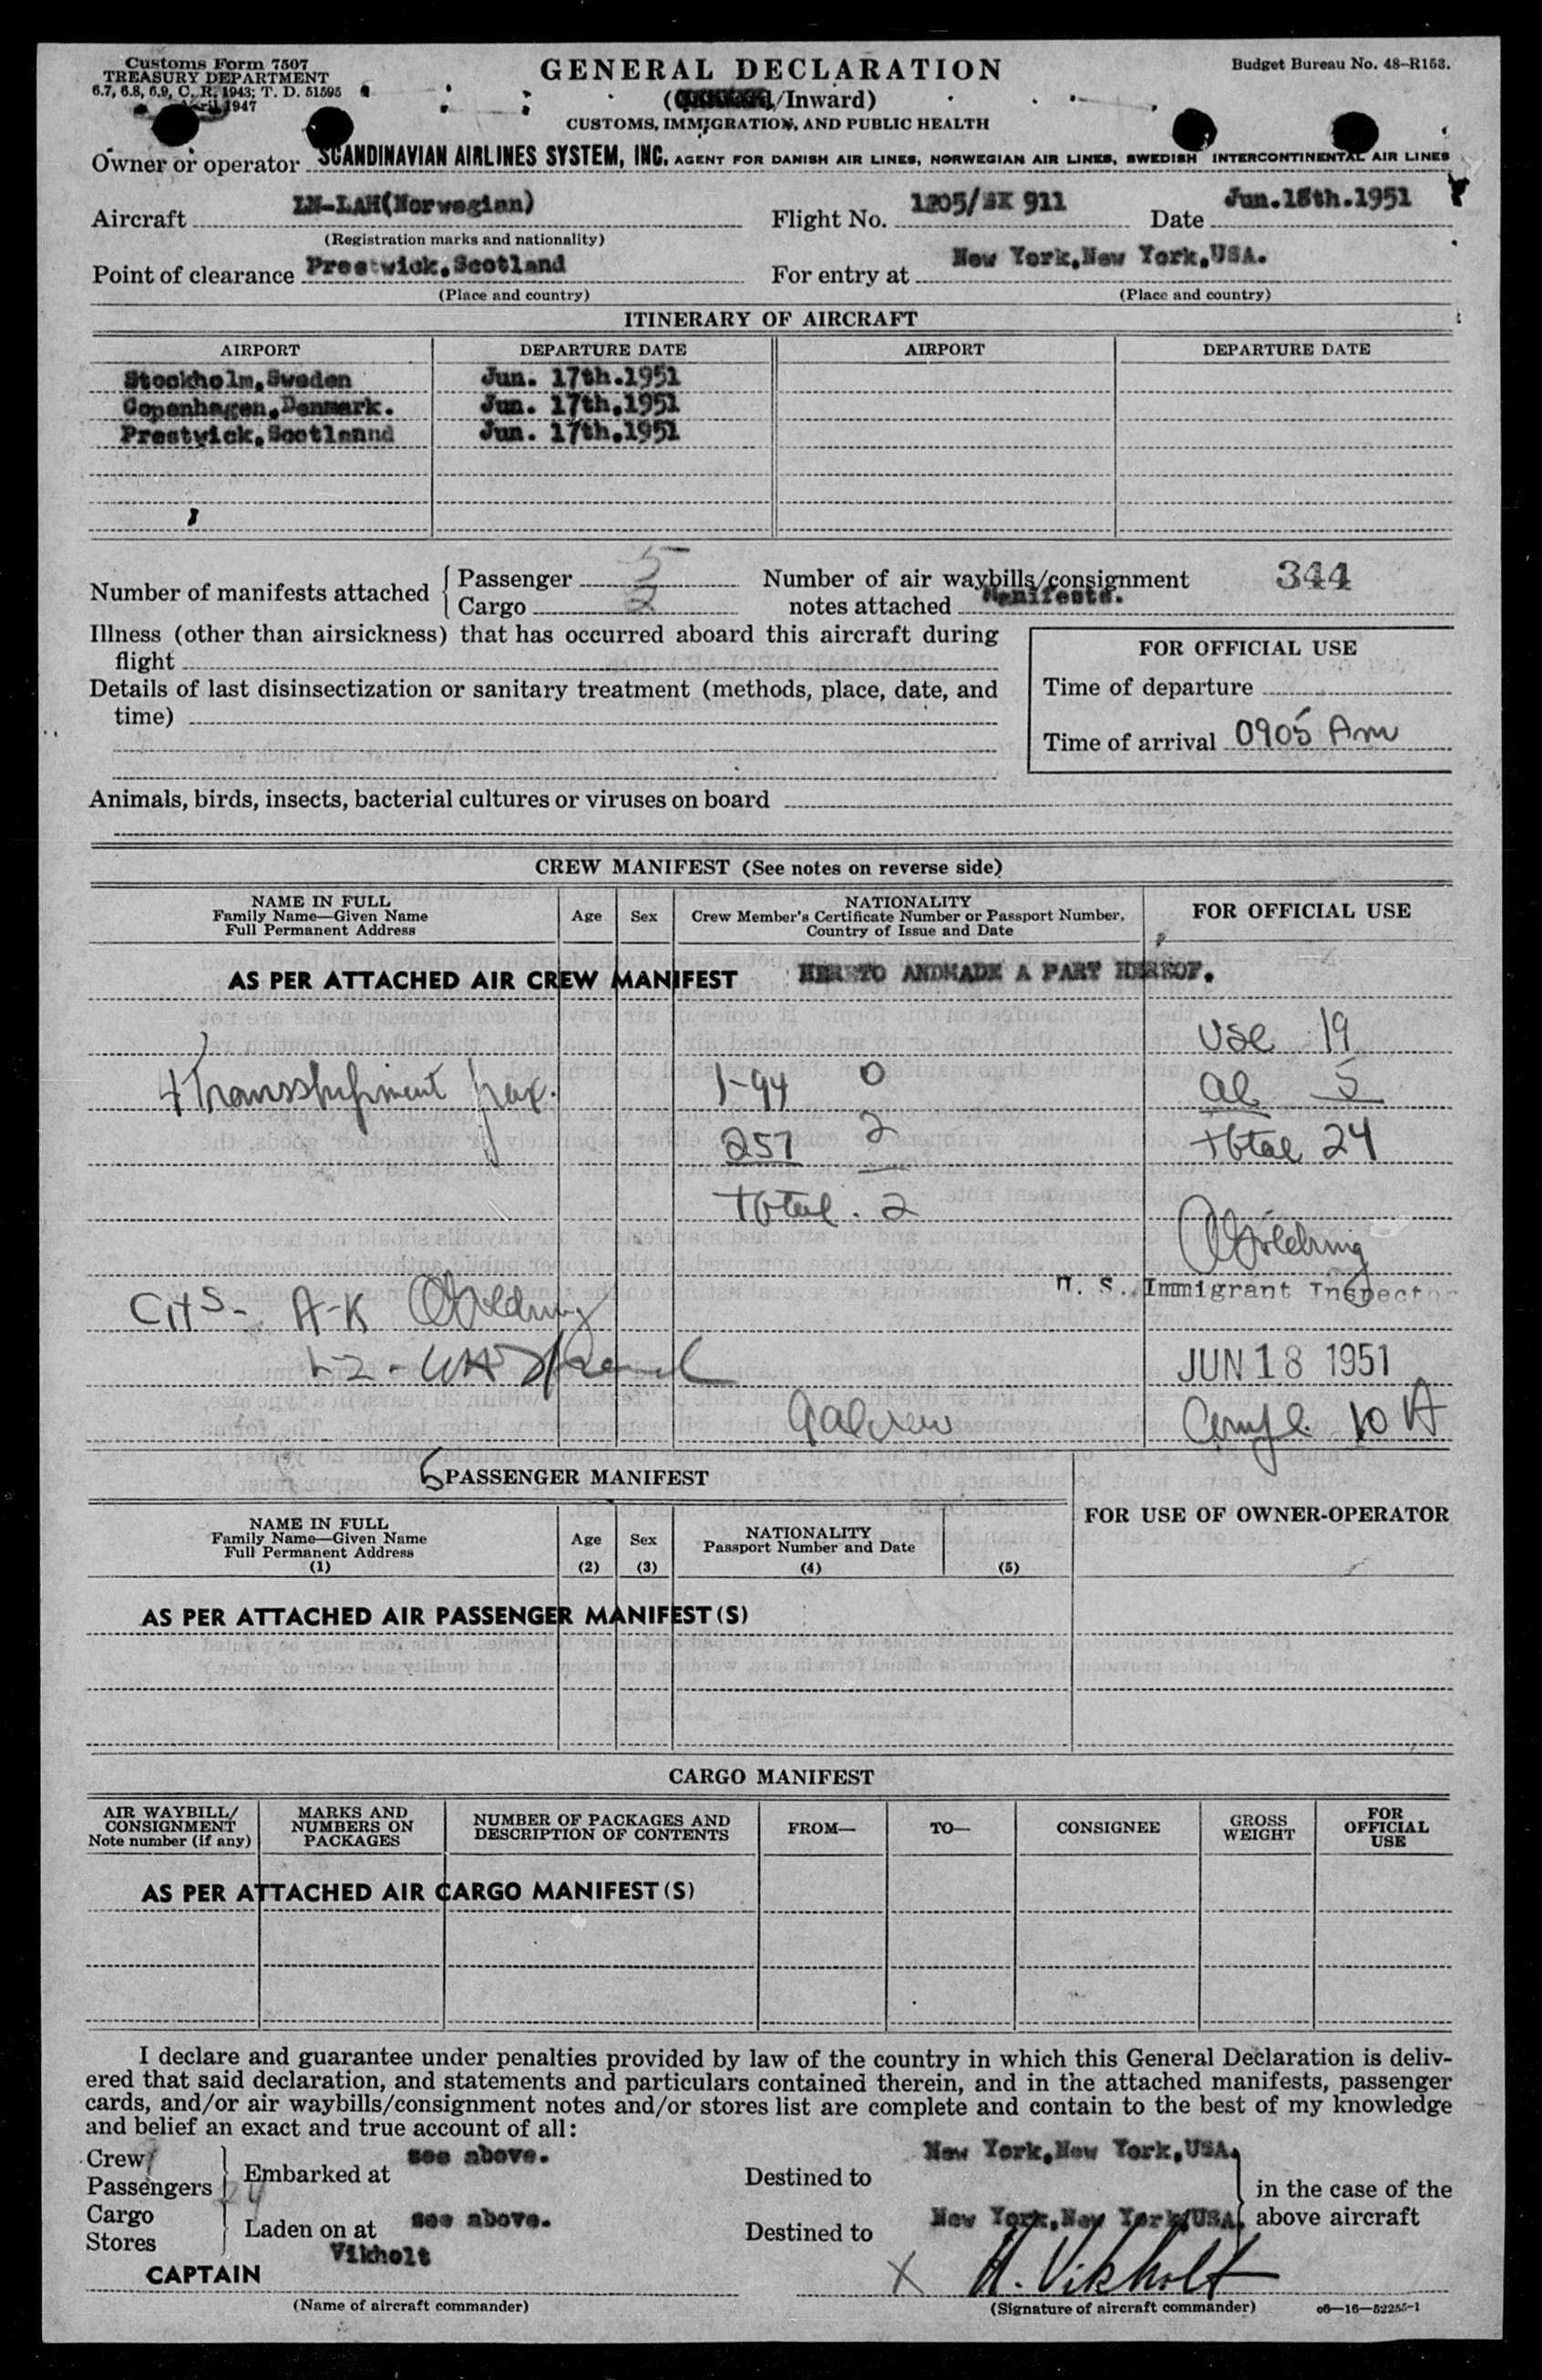 Customs Form 7507
TREASURY DEPARTMENT
6.7, 6.8, 6.9, C. R. 1943; T. D. 51595
April 1947
GENERAL DECLARATION
(/Inward)
CUSTOMS, IMMIGRATION, AND PUBLIC HEALTH
Budget Bureau No. 48-R153.
Owner or operator SCANDINAVIAN AIRLINES SYSTEM, INC. AGENT FOR DANISH AIR LINES, NORWEGIAN AIR LINES, SWEDISH INTERCONTINENTAL AIR LINES
Aircraft LN-LAH(Norwegian) Flight No. 1205/SK 911 Date Jun.18th.1951
(Registration marks and nationality)
Point of clearance Prestwick,Scotland For entry at New York,New York,USA.
(Place and country) (Place and country)
ITINERARY OF AIRCRAFT
AIRPORT DEPARTURE DATE AIRPORT DEPARTURE DATE
Stockholm,Sweden Jun. 17th.1951
Copenhagen,Denmark. Jun. 17th,1951
Prestwick,Scotlnand Jun. 17th,1951
Number of manifests attached Passenger 5 Number of air waybills/consignment 344
Cargo 2 notes attached Manifests.
Illness (other than airsickness) that has occurred aboard this aircraft during
flight
FOR OFFICIAL USE
Details of last disinsectization or sanitary treatment (methods, place, date, and
time)
Time of departure
Time of arrival 0905 Am
Animals, birds, insects, bacterial cultures or viruses on board
CREW MANIFEST (See notes on reverse side)
NAME IN FULL
Family Name—Given Name
Full Permanent Address
Age Sex
NATIONALITY
Crew Member's Certificate Number or Passport Number,
Country of Issue and Date
FOR OFFICIAL USE
AS PER ATTACHED AIR CREW MANIFEST HERETO ANDMADE A PART HEREOF.
USC 19
4 Transshipment pax. 1-94 0 al 5
257 2 total 24
Total. 2
U. S. Immigrant Inspector
Cits- A-K
L-Z -
JUN 18 1951
10 A
5 PASSENGER MANIFEST
NAME IN FULL
Family Name—Given Name
Full Permanent Address
(1)
Age
(2)
Sex
(3)
NATIONALITY
Passport Number and Date
(4) (5)
FOR USE OF OWNER-OPERATOR
AS PER ATTACHED AIR PASSENGER MANIFEST(S)
CARGO MANIFEST
AIR WAYBILL/
CONSIGNMENT
Note number (if any)
MARKS AND
NUMBERS ON
PACKAGES
NUMBER OF PACKAGES AND
DESCRIPTION OF CONTENTS
FROM— TO— CONSIGNEE
GROSS
WEIGHT
FOR
OFFICIAL
USE
AS PER ATTACHED AIR CARGO MANIFEST(S)
I declare and guarantee under penalties provided by law of the country in which this General Declaration is deliv-
ered that said declaration, and statements and particulars contained therein, and in the attached manifests, passenger
cards, and/or air waybills/consignment notes and/or stores list are complete and contain to the best of my knowledge
and belief an exact and true account of all:
Crew
Passengers
Embarked at see above. Destined to New York,New York,USA.
in the case of the
above aircraft
Cargo
Stores
Laden on at see above. Destined to New York,New York,USA.
CAPTAIN Vikholt X H. Vikholt
(Name of aircraft commander) (Signature of aircraft commander) c6—16—52255-1